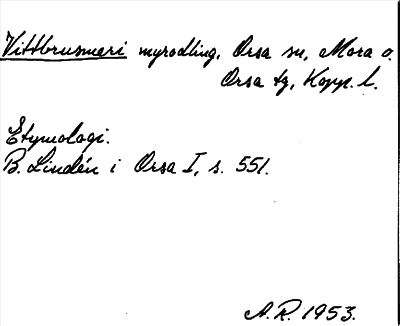 Vittbrusmeri myrodling, Orsa sn, Mora o.
Orsa tg, Kopp. l.
Etymologi.
B. Lindén i Orsa I, s. 551.
A.R. 1953.